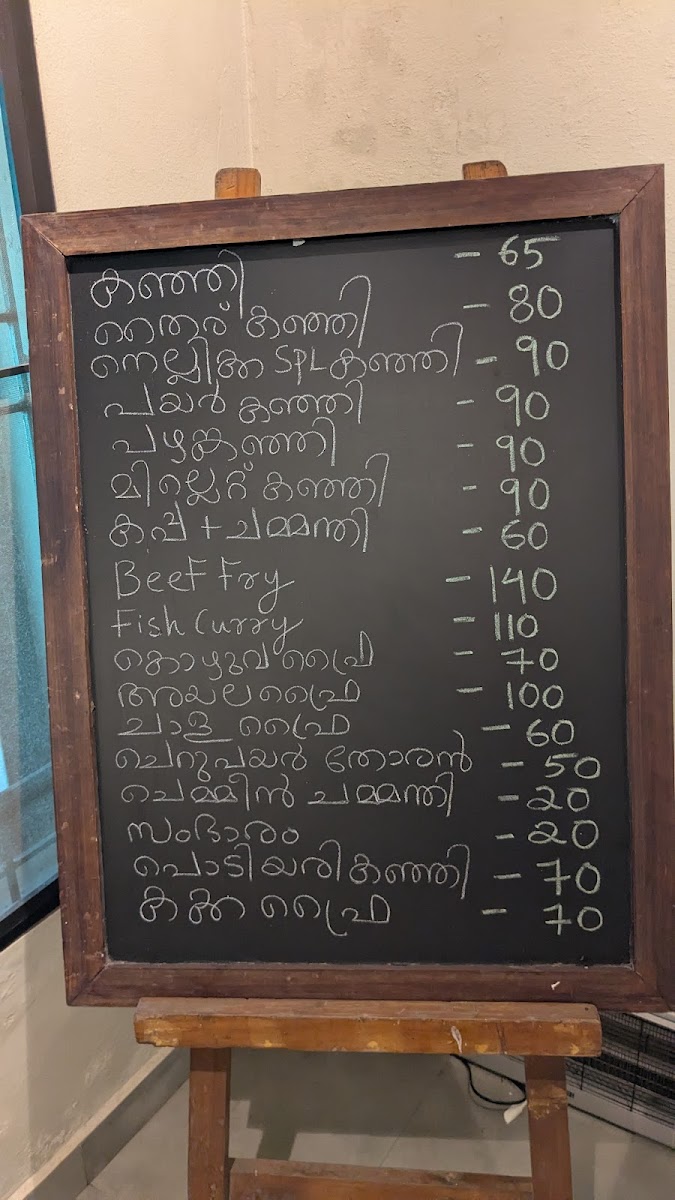 കഞ്ഞി - 65
തൈര് കഞ്ഞി - 80
നെല്ലിക്ക SPL കഞ്ഞി - 90
പയർ കഞ്ഞി - 90
പഴങ്കഞ്ഞി - 90
മില്ലെറ്റ് കഞ്ഞി - 90
കപ്പ + ചമ്മന്തി - 60
Beef Fry - 140
Fish Curry - 110
കൊഴുവ ഫ്രൈ - 70
അയല ഫ്രൈ - 100
ചാള ഫ്രൈ - 60
ചെറുപയർ തോരൻ - 50
ചെമ്മീൻ ചമ്മന്തി - 20
സംഭാരം - 20
പൊടിയരി കഞ്ഞി - 70
കക്ക ഫ്രൈ - 70